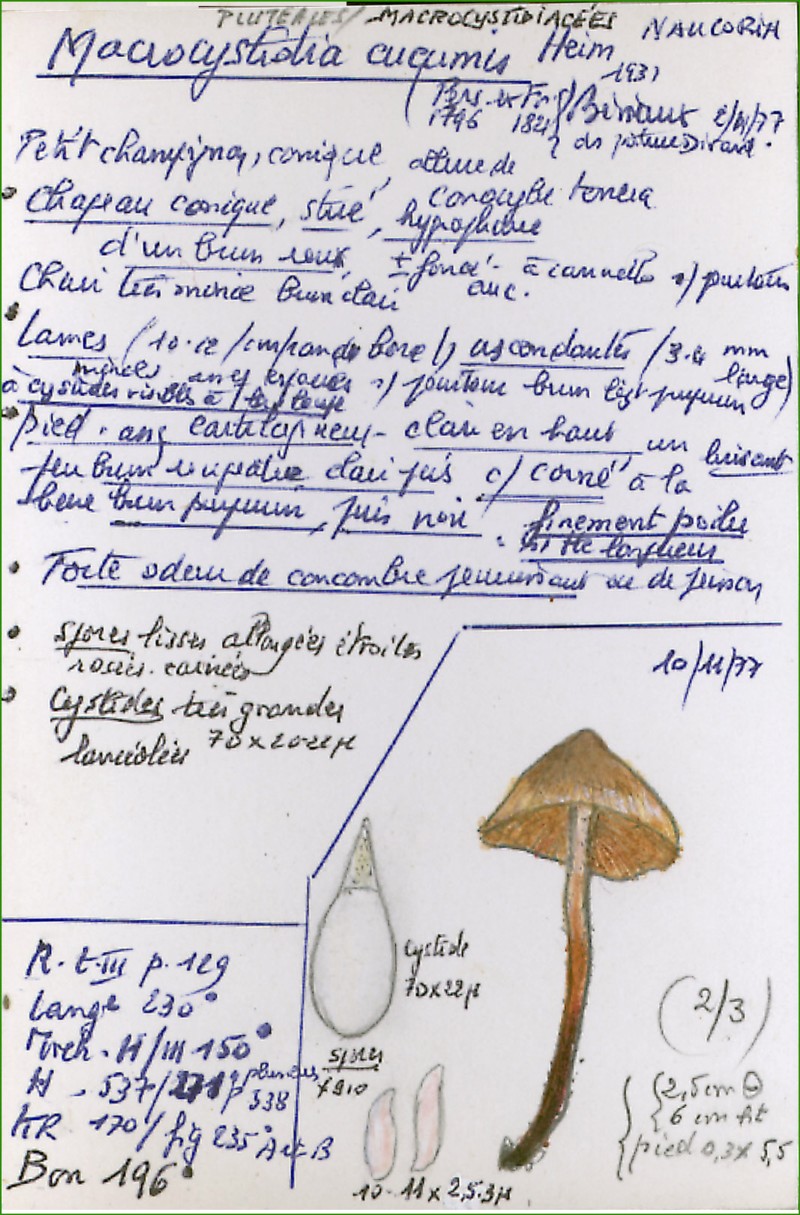 PLUTEALES/ MACROCYSTIDIACÉES
NAUCORIA
Macrocystidia cucumis Heim
1931
(Pers. ex Fr.)
1796 1821
2/11/77
Petit champignon, conique, allure de
conocybe tenera
Chapeau conique, strié, hygrophane
d'un brun roux, ± foncé - à cannelle
Chair très mince brun clair
Lames (10-12/cm ascendantes (3-4 mm
large)
minces
à cystides visibles à la loupe
Pied. cartilagineux - clair en haut un
luisant
peu brun rougeâtre clair puis c/ corné à la
base brun purpurin, puis noir. finement poilu
s/ tte longueur
Forte odeur de concombre ou de poisson
Spores lisses allongées étroites
Cystides très grandes
lancéolées 70 x 20-22 µ
10/11/77
R. t. III p. 129
Lange 230°
H/III 150°
H. 537/ p 338
KR 170/ fig 235° Act B
Bon 196°
Cystide
70x22µ
spores
x910
10-11 x 2,5-3µ
(2/3)
2,5 cm Θ
6 cm ht
pied 0,3 x 5,5